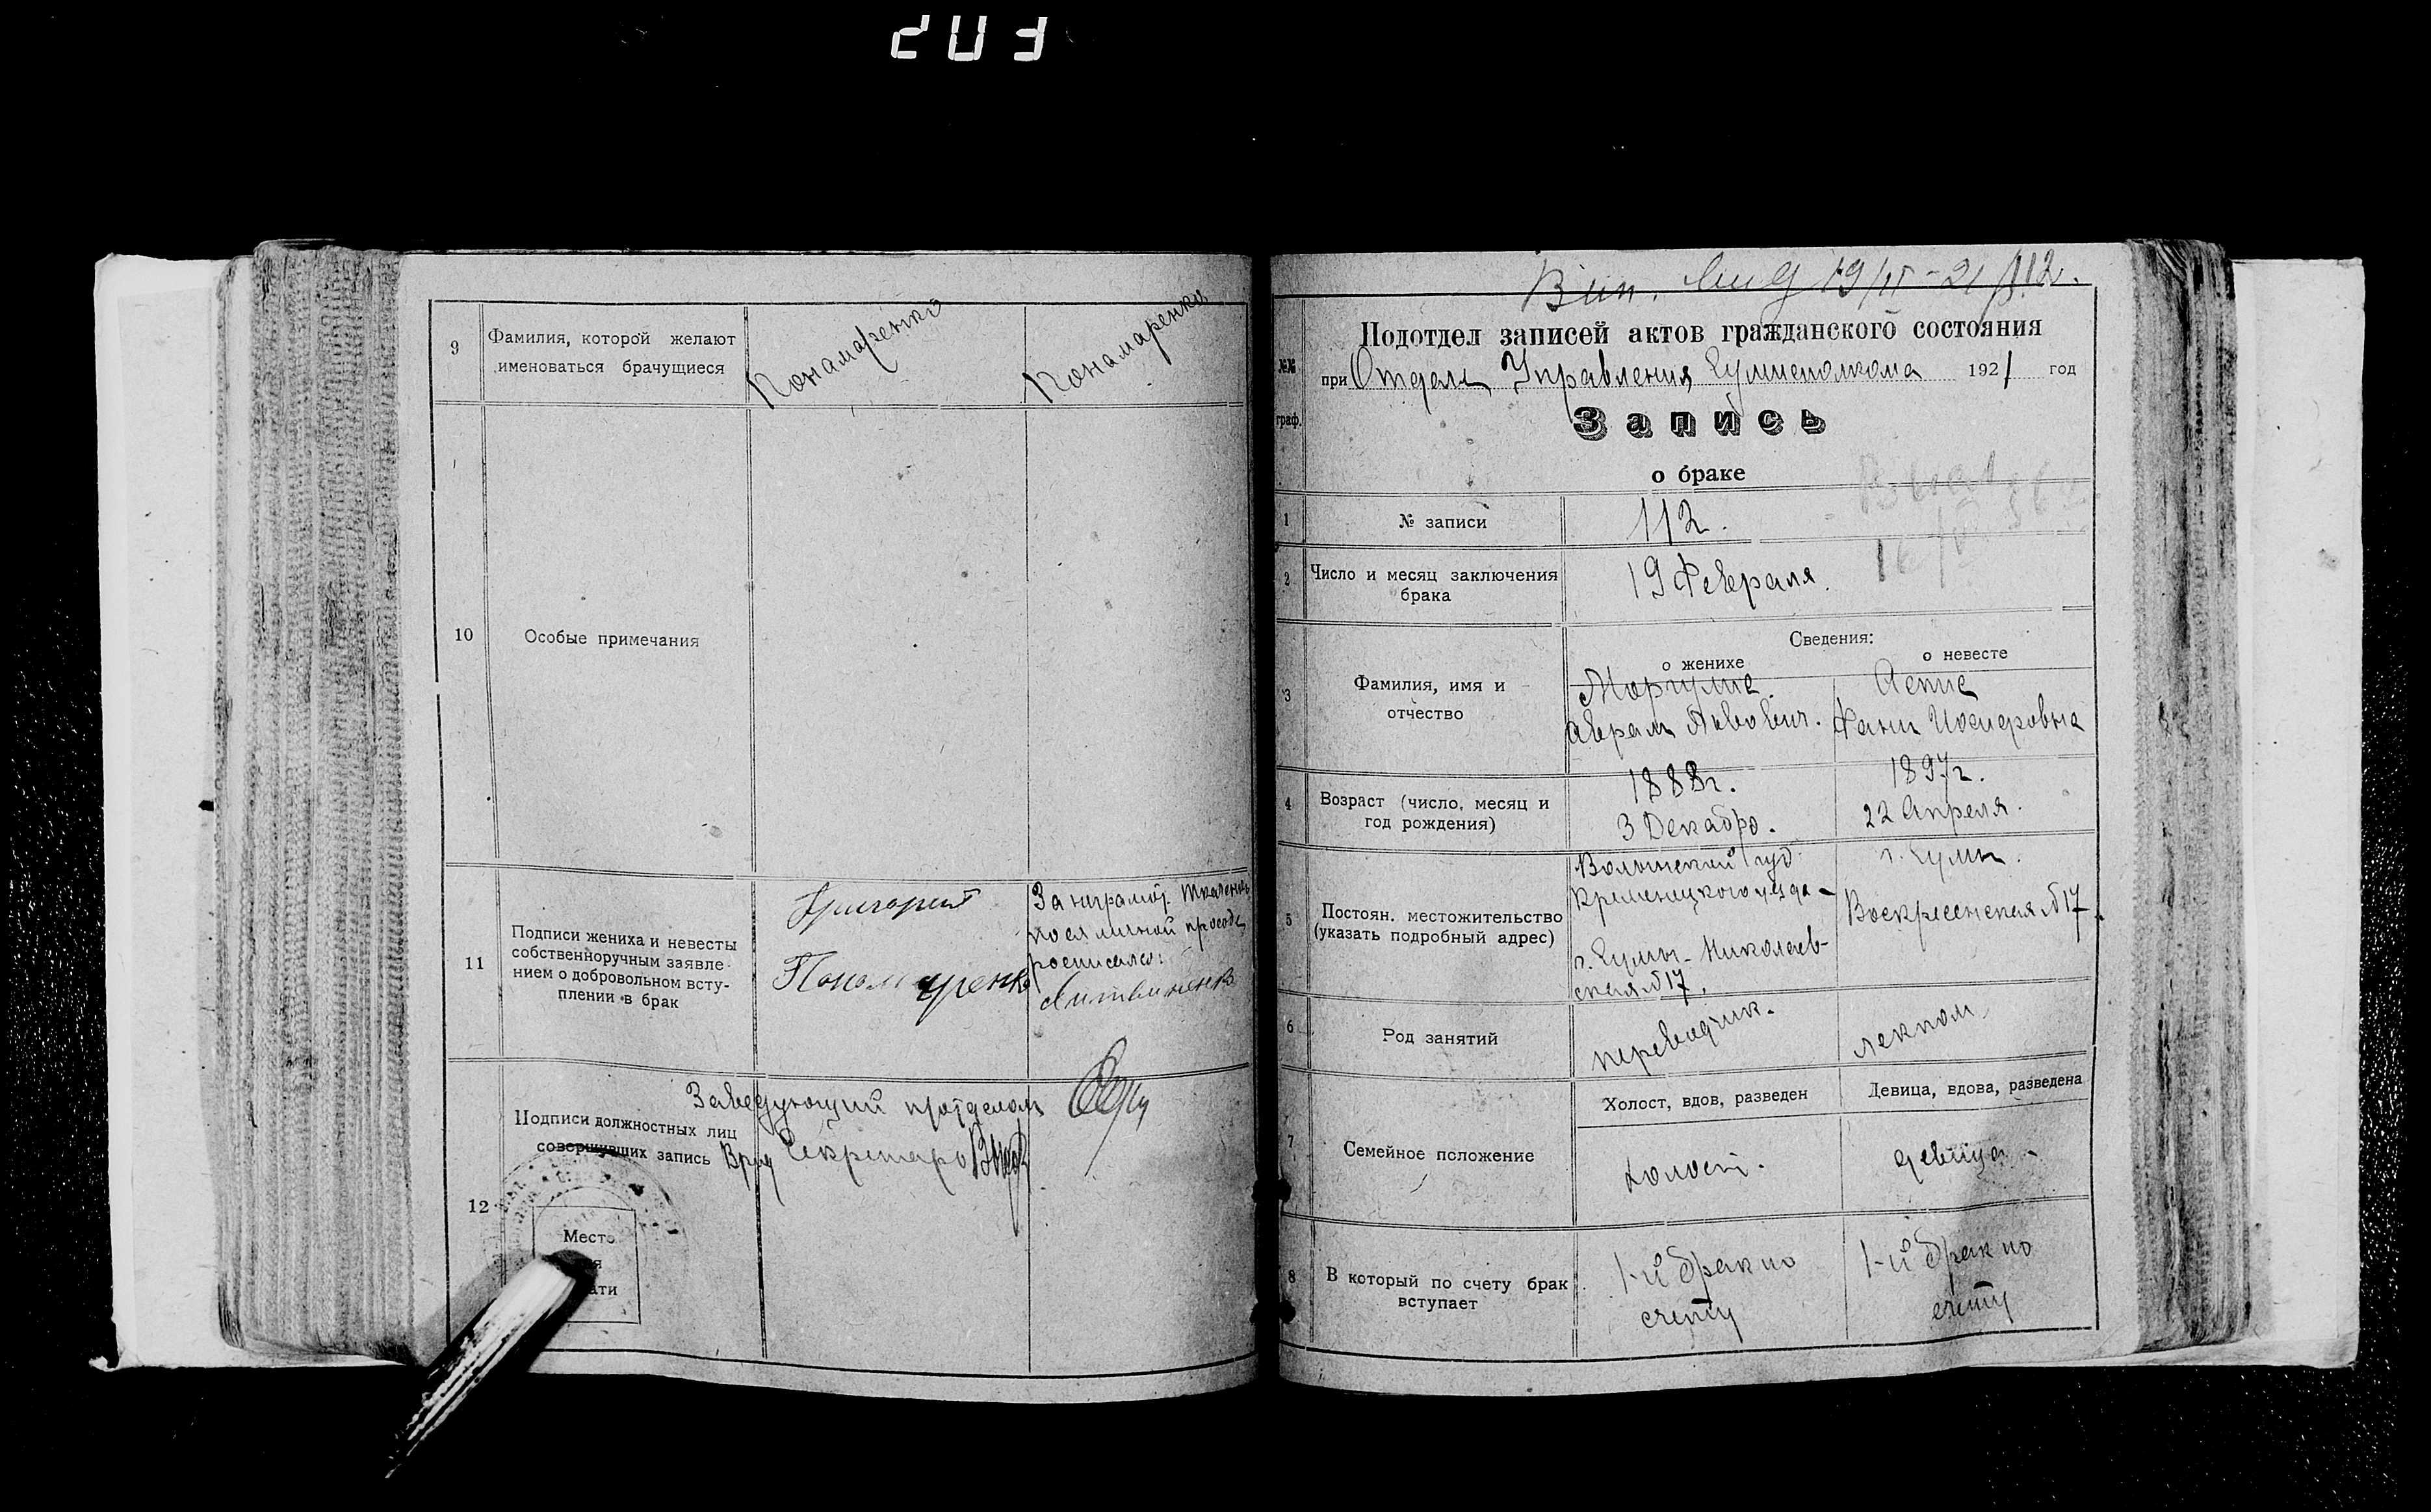 203
9
Фамилия, которой желают
именоваться брачущиеся
Понамаренко
Понамаренко
10
Особые примечания
11
Подписи жениха и невесты
собственноручным заявле-
нием о добровольном всту-
плении в брак
Григорий
Пономаренко
За неграмот. Ткаленко
по ея личной просьбе
росписался:
Литвиненко
12
Подписи должностных лиц
совершивших запись
Заведующий п/отделом
Врид Секретаря
Место
я
ати
19/II-21 112.
№№
граф.
Подотдел записей актов гражданского состояния
при Отделе Управления Сумисполкома 1921 год
Запись
о браке
1
№ записи
112.
2
Число и месяц заключения
брака
19 Февраля.
Сведения:
о женихе
о невесте
3
Фамилия, имя и
отчество
Моргулис.
Аврам Львович.
Аспис
Фани Иосифовна
4
Возраст (число, месяц и
год рождения)
1888г.
3 Декабр.
1897г.
22 Апреля.
5
Постоян. местожительство
(указать подробный адрес)
Волынской губ.
Кременецкого уезда -
г. Сумы - Николаев-
ская №17.
г. Сумы.
Воскресенская №17.
6
Род занятий
переводчик.
лекпом
7
Семейное положение
Холост, вдов, разведен
Девица, вдова, разведена
холост.
девица
8
В который по счету брак
вступает
1-й брак по
счету
1-й брак по
счету